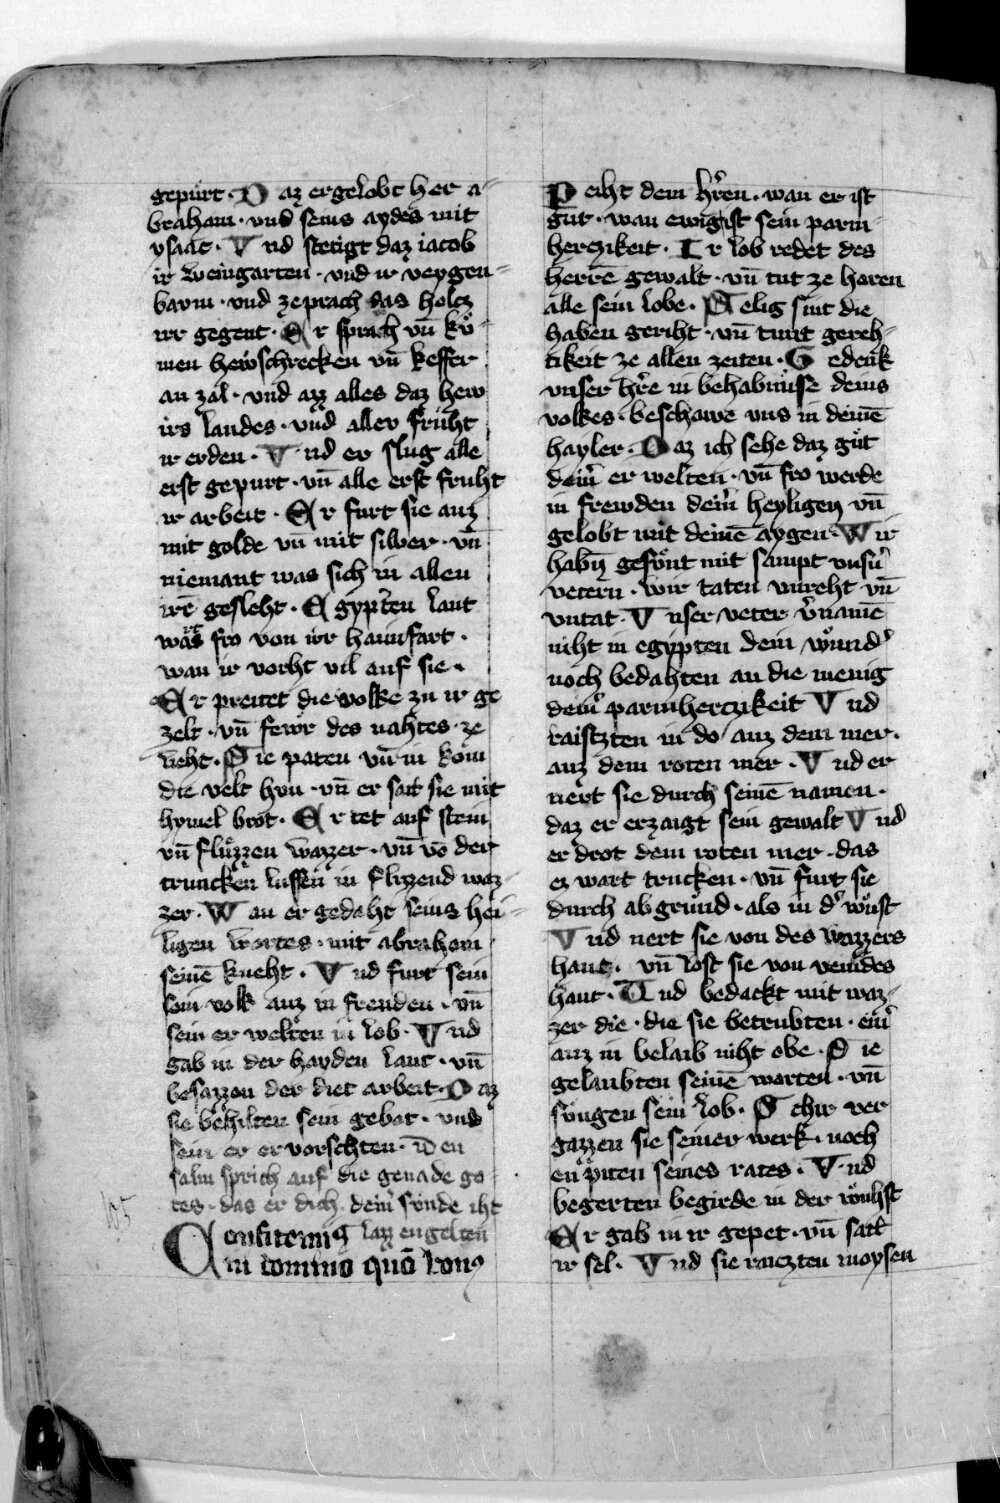 gepürt · D az ergelobt her a-
braham · vnd seins aydes mit
ysaac · V nd stetigt daz iacob
ir weingarten · vnd ir veygen-
bavm · vnd zeprach das holcz
irr gegent · E r sprach vn̄ kö-
men hewschrecken vn̄ keffer
an zal · vnd azz alles daz hew
irs landes · vnd aller früht
ir erden · V nd er slug alle
erst gepurt · vn̄ alle erst fruht
ir arbeit · E r furt sie auz
mit golde vn̄ mit silber · vn̄
niemant was sich in allen
irē gesleht · E gypten lant
was fro von irr hainfart ·
wan ir vorht vil auf sie ·
E r preitet die wolke zu ir ge
zelt · vn̄ fewr des nahtes · ze
lieht · S ie paten vn̄ in kom
die velt hvn · vn̄ er sait sie mit
hymel brot · E r tet auf stein
vn̄ fluzzen wazzer · vn̄ vō der
truncken luffen in flizzend waz-
zer · W an er gedaht seins hei-
ligen wortes · mit abraham
seinē kneht · V nd furt sein
sein volk auz in freuden · vn̄
sein er welten in lob · V nd
gab in der hayden lant · vn̄
besazzen der diet arbeit · D az
sie behilten sein gebot · vnd
sein er ervorschten · D en
salm sprich auf die genade go-
tes · das er dich dein̉ sünde iht
C onfitemiꝫ lazz engelten
ni domino quō bonꝰ
P eiht dem hr̄en · wan er ist
gut · wan ewig ist sein parm-
herczikeit · I r lob redet des
herrē gewalt · vn̄ tut ze horen
alle sein lobe · S elig sint die
haben geriht · vn̄ tunt gereh-
tikeit ze allen zeiten · G edenk
vnser hr̄e in behabnüse deins
volkes · beschowe vns in deinē
hayler · D az ich sehe daz gut
dein̉ er welten · vn̄ fro werde
in frewden dein̉ heyligen vn̄
gelobt mit deinē aygen · W ir
habn̄ gesönt mit sampt vnsn̉
vetern · wir taten vnreht vn̄
vntat · V nser veter v̉namē
niht in egypten dein wund̉
noch bedahten an die menig
dein̉ parmherczikeit V nd
raisczten in do auz dem mer ·
auz dem roten mer · V nd er
nert sie durch seinē namen ·
daz er erzaigt sein gewalt V nd
er drot dem roten mer · das
ez wart trucken · vn̄ furt sie
durch abgrund · als in d̉ wüst
V nd nert sie von des wazzers
hant · vn̄ lost sie von veindes
hant · V nd bedackt mit waz-
zer die · die sie betrubten · ein̉
auz in belaib niht obe · S ie
gelaubten seinē worten · vn̄
sungen sein lob · S chir ver
gazzen sie seiner werk · noch
enpiten seines rates · V nd
begerten begirde in der wuhst
E r gab in ir gepet · vn̄ satt
ir sel · V nd sie raiczten moysen